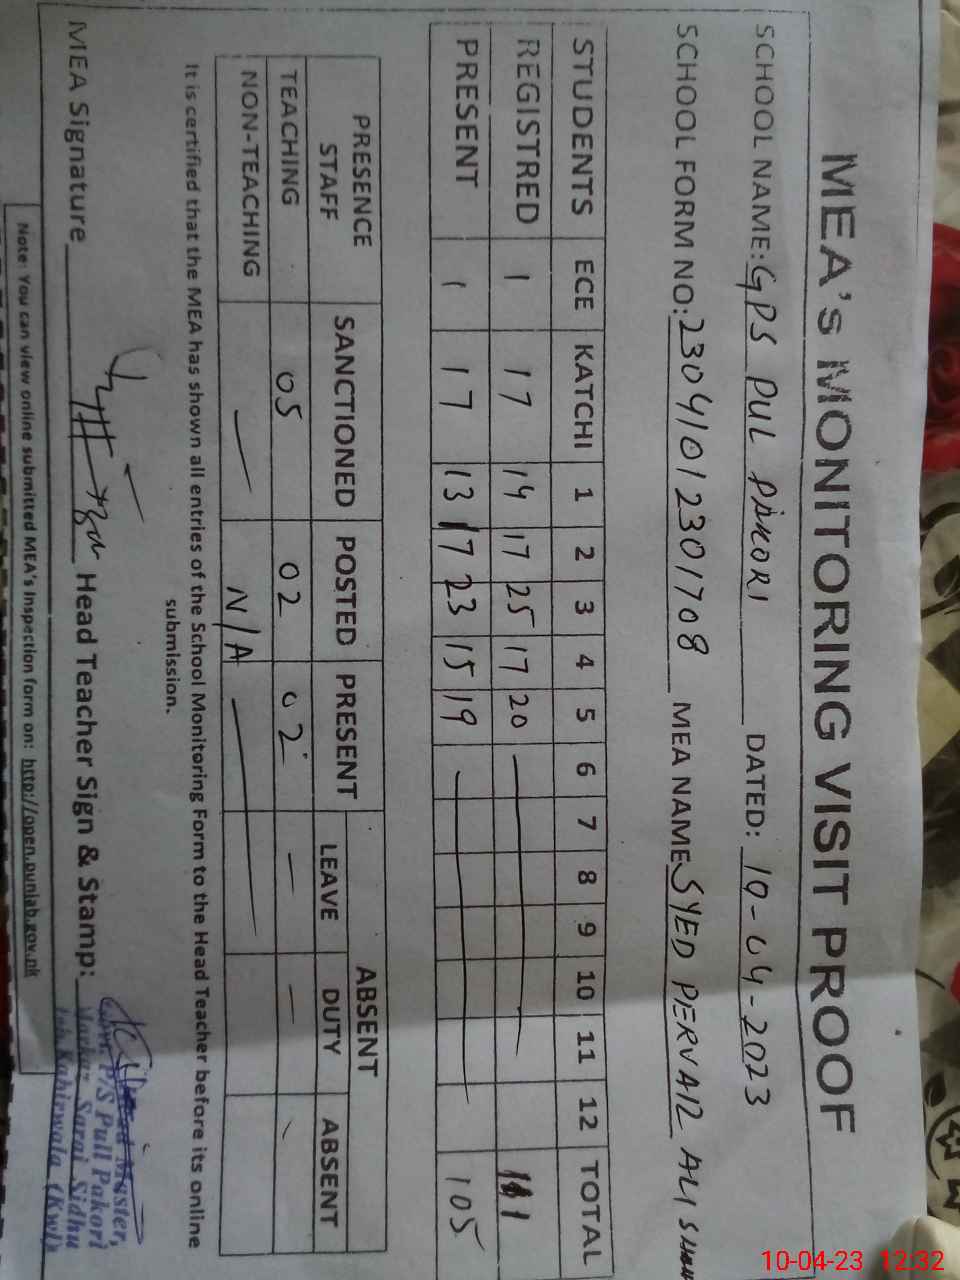 MEA's MONITORING VISIT PROOF
SCHOOL NAME: GPS PUL PAKORI DATED: 10-04-2023
SCHOOL FORM NO: 23041012301708 MEA NAME SYED PERVAIZ ALI SHAH
STUDENTS ECE KATCHI 1 2 3 4 5 6 7 8 9 10 11 12 TOTAL
REGISTRED 1 17 14 17 25 17 20 — 111
PRESENT 1 17 13 17 23 15 19 — 105
PRESENCE STAFF SANCTIONED POSTED PRESENT ABSENT
LEAVE DUTY ABSENT
TEACHING 05 02 02 — — —
NON-TEACHING — N/A —
It is certified that the MEA has shown all entries of the School Monitoring Form to the Head Teacher before its online
submission.
MEA Signature Head Teacher Sign & Stamp:
Master,
P/S Pull Pakori
Markaz Sarai Sidhu
Kabirwala (Kwl)
Note: You can view online submitted MEA's Inspection form on: http://open.punjab.gov.pk
10-04-23 12:32